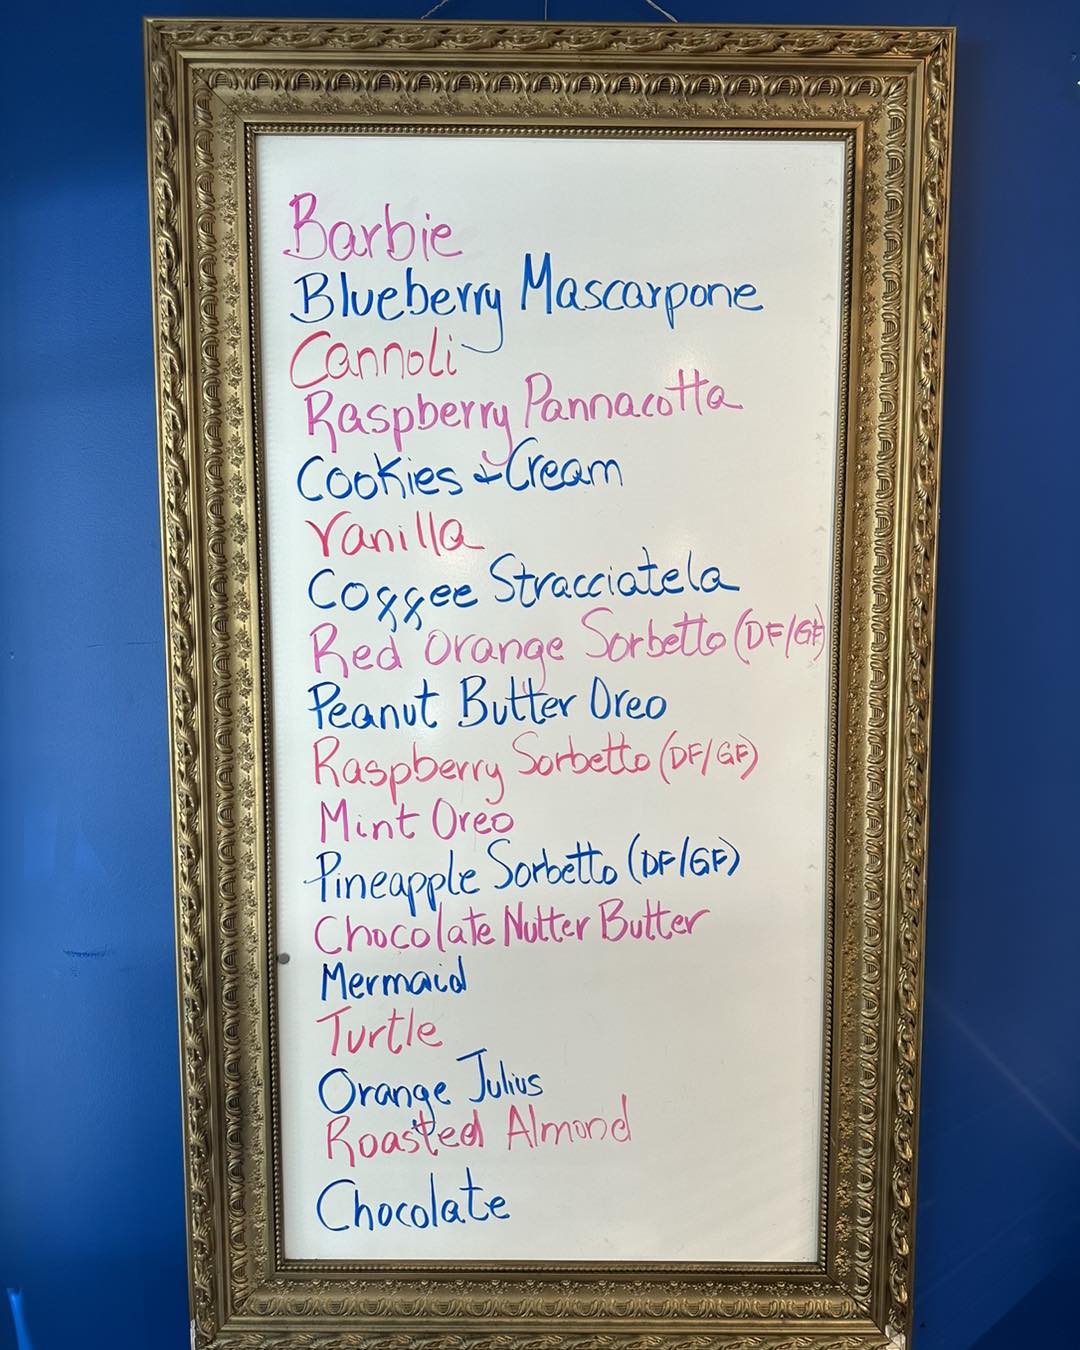 Barbie
Blueberry Mascarpone
Cannoli
Raspberry Pannacotta
Cookies & Cream
Vanilla
Coffee Stracciatela
Red Orange Sorbetto (DF/GF)
Peanut Butter Oreo
Raspberry Sorbetto (DF/GF)
Mint Oreo
Pineapple Sorbetto (DF/GF)
Chocolate Nutter Butter
Mermaid
Turtle
Orange Julius
Roasted Almond
Chocolate